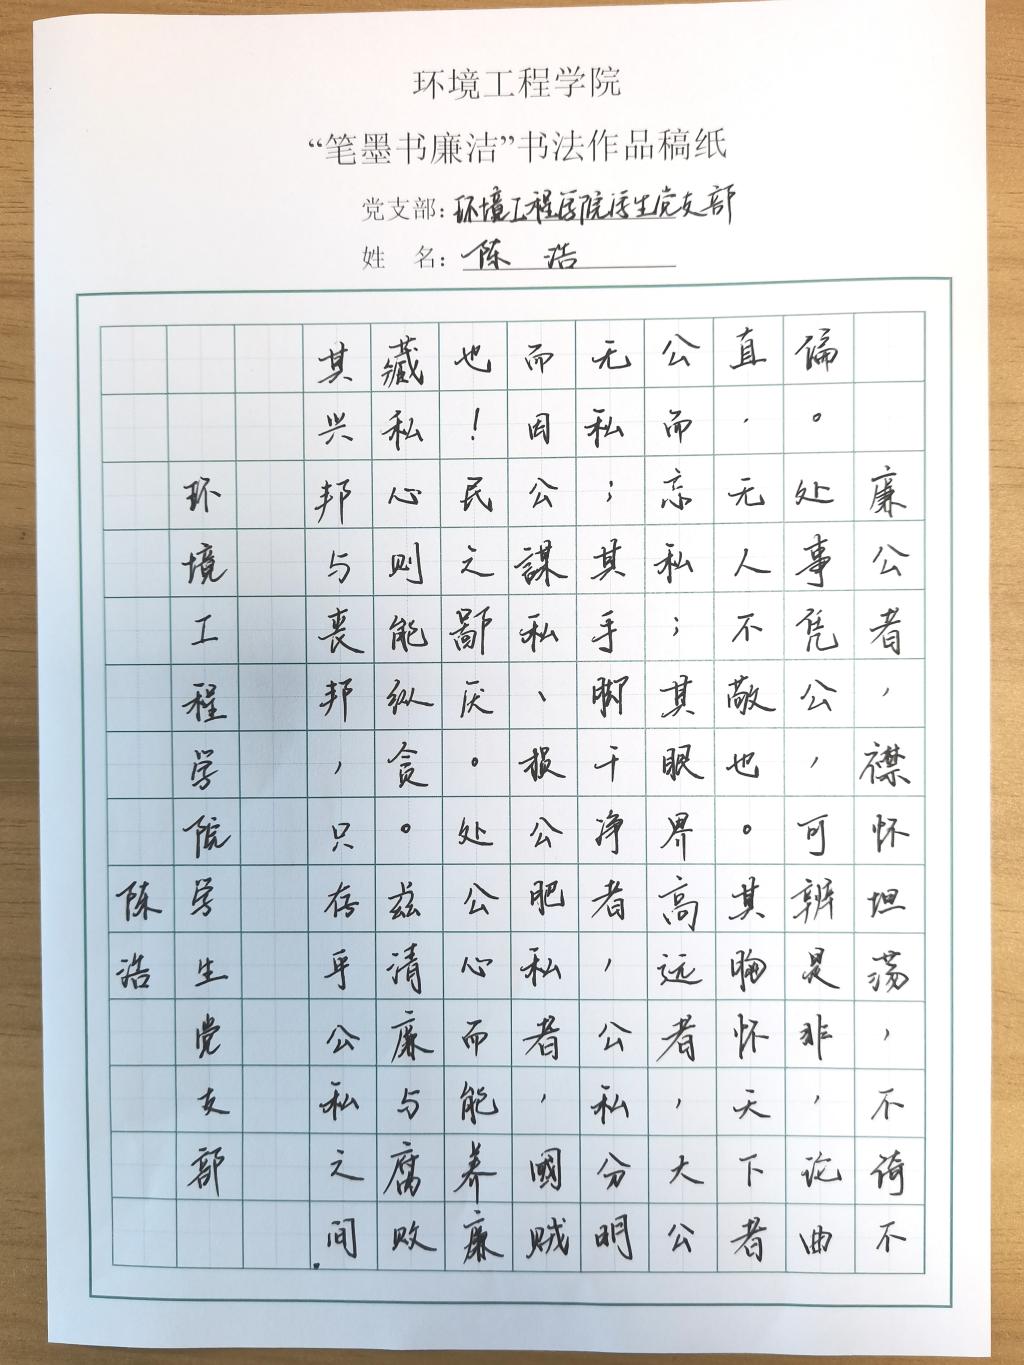 环境工程学院
“笔墨书廉洁”书法作品稿纸
党支部：环境工程学院学生党支部
姓　名：陈浩
廉公者，襟怀坦荡，不倚不
偏。处事凭公，可辨是非，论曲
直，无人不敬也。其胸怀天下者
公而忘私；其眼界高远者，大公
无私；其手脚干净者，公私分明
而因公謀私、损公肥私者，國贼
也！民之鄙厌。处公心而能养廉
藏私心则能纵贪。兹清廉与腐败
其兴邦与丧邦，只存乎公私之间.
环境工程学院学生党支部
陈浩